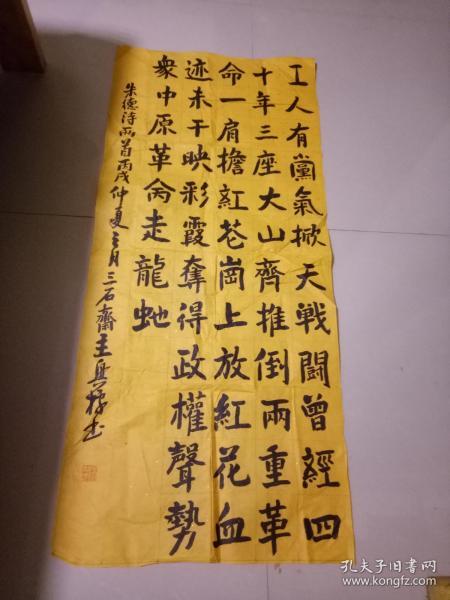 工人有黨氣掀天戦闘曾經四
十年三座大山齊推倒兩重革
命一肩擔紅花崗上放紅花血
迹未干映彩霞奪得政權聲勢
衆中原革命走龍虵
朱德诗兩首丙戌仲夏之月三石齋主书
孔夫子旧书网
www.kongfz.com